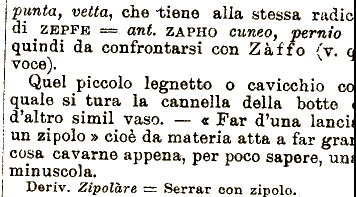 punta, vetta, che tiene alla stessa radic
di ZEPFE = ant. ZAPHO cuneo, pernio
quindi da confrontarsi con Zàffo (v. q
voce).
Quel piccolo legnetto o cavicchio co
quale si tura la cannella della botte
d'altro simil vaso. — « Far d'una lanci
un zipolo » cioè da materia atta a far gran
cosa cavarne appena, per poco sapere, un
minuscola.
Deriv. Zipolàre = Serrar con zipolo.